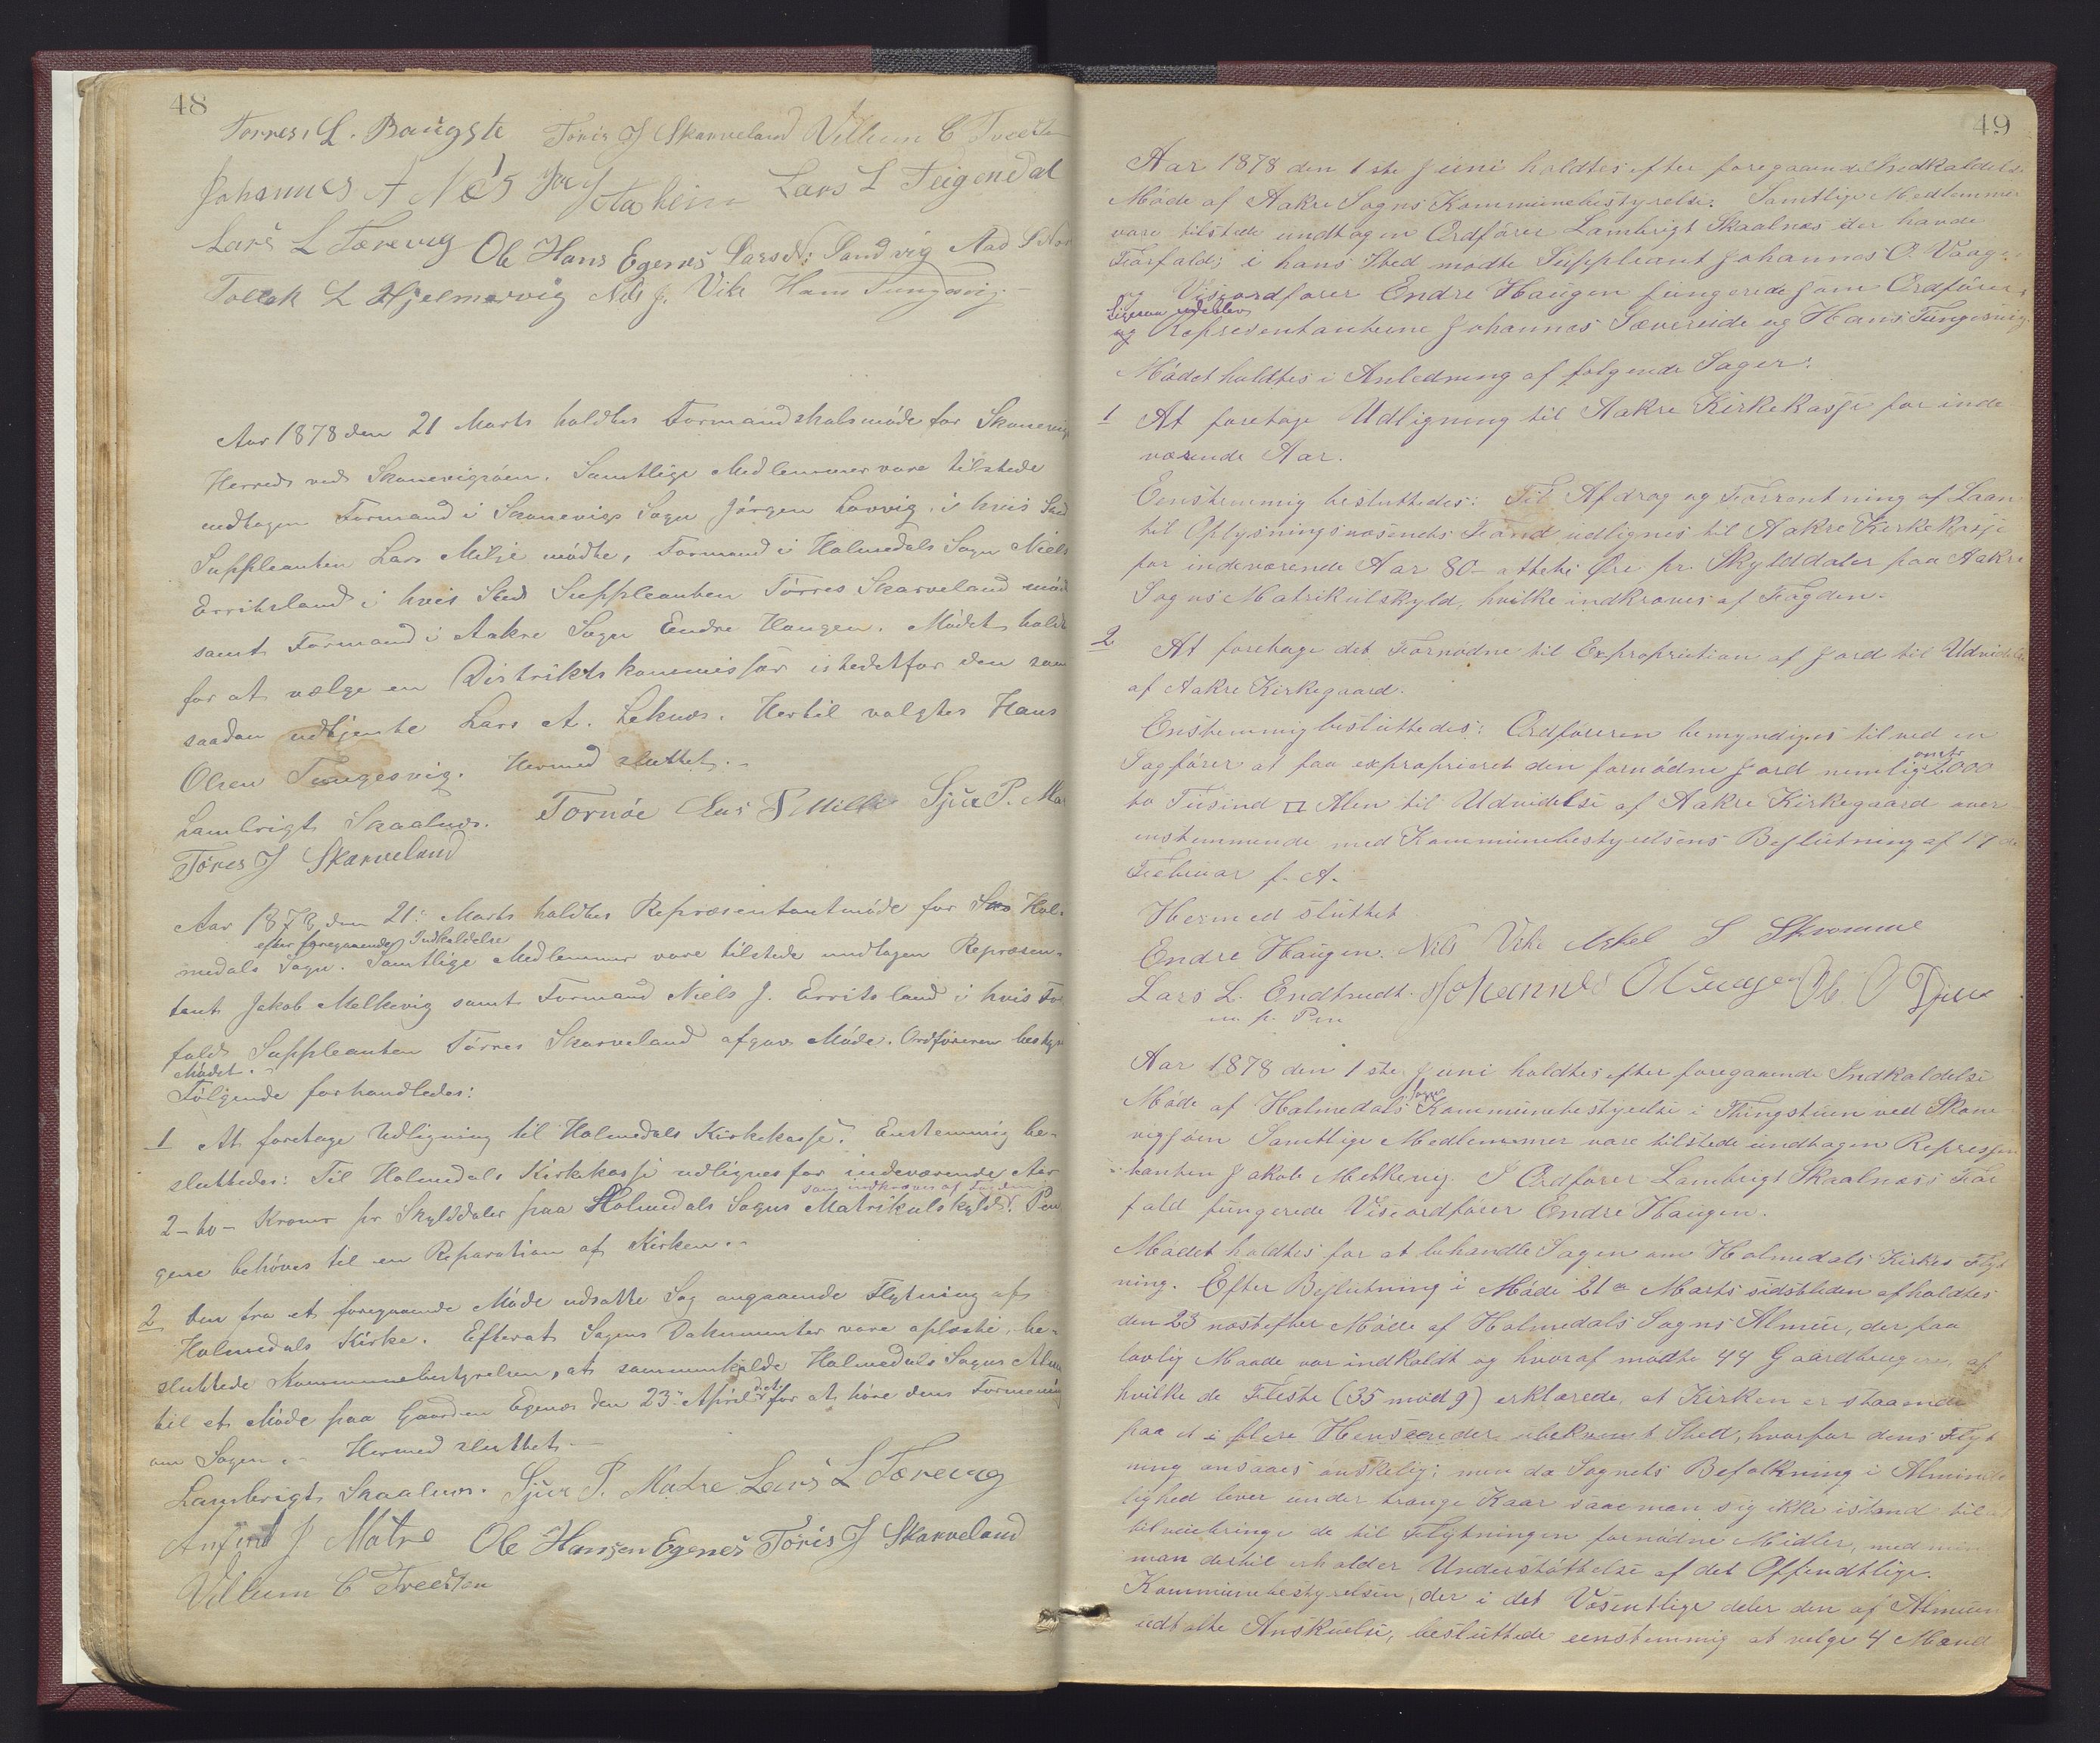 48
Torres, L. Baugstø Tøris J Skarveland Villum C Tveeten
Johannes A Næs Lars L Teigendal
Lars L Tærevig Ole Hans Egenes Lars N. Sandvig Aad
Tollak L Hjelmervig Nils J. Vike Hans Tungesvig
Aar 1878 den 21 Marts holdtes Formandskabsmøde for Skonevigs
Herred ved Skonevigsøen. Samtlige Medlemmer vare tilstede
undtagen Formand i Skonevigs Sogn Jørgen Lavvig, i hvis Sted
Suppleanten Lars Milje mødte, Formand i Holmedals Sogn Niels
Erritsland i hvis Sted Suppleanten Tørres Skarveland mød
samt Formand i Aakre Sogn Endre Haugen. Mødet holdt
for at vælge en Distriktskommissær istedetfor den som
saadan udtjente Lars A. Leknes. Hertil valgtes Hans
Olsen Tungesvig. Hermed sluttet.
Lambrigt Skaalnæs. Tornøe Lars S Milje Sjur P. Ma
Tøres J Skarveland
Aar 1878 den 21. Marts holdtes Repræsentantmøde for Hol-
efter foregaaende Indkaldelse
medals Sogn. Samtlige Medlemmer vare tilstede undtagen Repræsen-
tant Jakob Melkevig samt Formand Niels J. Erritsland i hvis For
fald Suppleanten Tørres Skarveland afgav Møde. Ordføreren bestyr
Mødet.
Følgende forhandledes:
1 At foretage Udligning til Holmedals Kirkekasse. Enstemmig be-
sluttedes: Til Holmedals Kirkekasse udlignes for indeværende Aar
som indkræves af Fogden
2 - to - Kroner pr Skylddaler paa Holmedals Sogns Matrikulskyld. Pen
gene behøves til en Reparation af Kirken.
2 Den fra et foregaaende Møde udsatte Sag angaaende Flytning af
Holmedals Kirke. Efterat Sagens Dokumenter vare oplæste, be-
sluttede Kommunebestyrelsen, at sammenkalde Holmedals Sogns Almue
til et Møde paa Gaarden Egenes den 23. April for at høre dens Formening
om Sagen. Hermed sluttet.
Lambrigt Skaalnæs. Sjur P. Matre Lars L Tærevig
Anfind J Matre Ole Hansen Egenes Tøris J Skarveland
Villum C Tveeten
49
Aar 1878 den 1ste Juni holdtes efter foregaaende Indkaldelse
Møde af Aakre Sogns Kommunebestyrelse. Samtlige Medlemmer
vare tilstede undtagen Ordfører Lambrigt Skaalnæs der havde
Forfald; i hans Sted mødte Suppleant Johannes O. Vaage
og Viseordfører Endre Haugen fungerede som Ordfører,
ligesaa udeblev
og Repræsentanterne Johannes Sævereide og Hans Tungesvig.
Mødet holdtes i Anledning af følgende Sager:
1 At foretage Udligning til Aakre Kirkekasse for inde
værende Aar.
Eenstemmig besluttedes: Til Afdrag og Forrentning af Laan
til Oplysningsvæsenets Fond udlignes til Aakre Kirkekasse
for indeværende Aar 80 - otteti Øre pr. Skylddaler paa Aakre
Sogns Matrikulskyld, hvilke indkræves af Fogden.
2 At foretage det Fornødne til Expropriation af Jord til Udvidelse
af Aakre Kirkegaard.
Enstemmig besluttedes: Ordføreren bemyndiges til ved en
Sagfører at faa exproprieret den fornødne Jord nemlig omtr 2000
to Tusind □ Alen til Udvidelse af Aakre Kirkegaard over-
enstemmende med Kommunebestyrelsens Beslutning af 17de
Februar f. A.
Hermed sluttet
Endre Haugen. Nils Vike Askel S Skromme
Lars L. Endtrudt. Johannes O Vaage Ole O
m. p. Pen
Aar 1878 den 1ste Juni holdtes efter foregaaende Indkaldelse
Møde af Holmedals Sogns Kommunebestyrelse i Thingstuen ved Skone
vigsøen Samtlige Medlemmer vare tilstede undtagen Represen
tanten Jakob Melkevig. I Ordfører Lambrigt Skaalnæs's For
fald fungerede Viseordfører Endre Haugen.
Mødet holdtes for at behandle Sagen om Holmedals Kirkes Flyt
ning. Efter Beslutning i Møde 21de Marts sidstleden afholdtes
den 23 næstefter Møde af Holmedals Sogns Almue, der paa
lovlig Maade var indkaldt og hvoraf mødte 44 Gaardbrugere, af
hvilke de Fleste (35 mod 9) erklærede, at Kirken er staaende
paa et i flere Henseender ubekvemt Sted, hvorfor dens Flyt
ning ansaaes ønskelig; men da Sognets Befolkning i Alminde
lighed lever under trange Kaar saae man sig ikke istand til at
tilveiebringe de til Flytningen fornødne Midler, med min
man dertil erholder Understøttelse af det Offentlige.
Kommunebestyrelsen, der i det Væsentlige deler den af Almuen
udtalte Anskuelse, besluttede eenstemmig at velge 4 Mænd